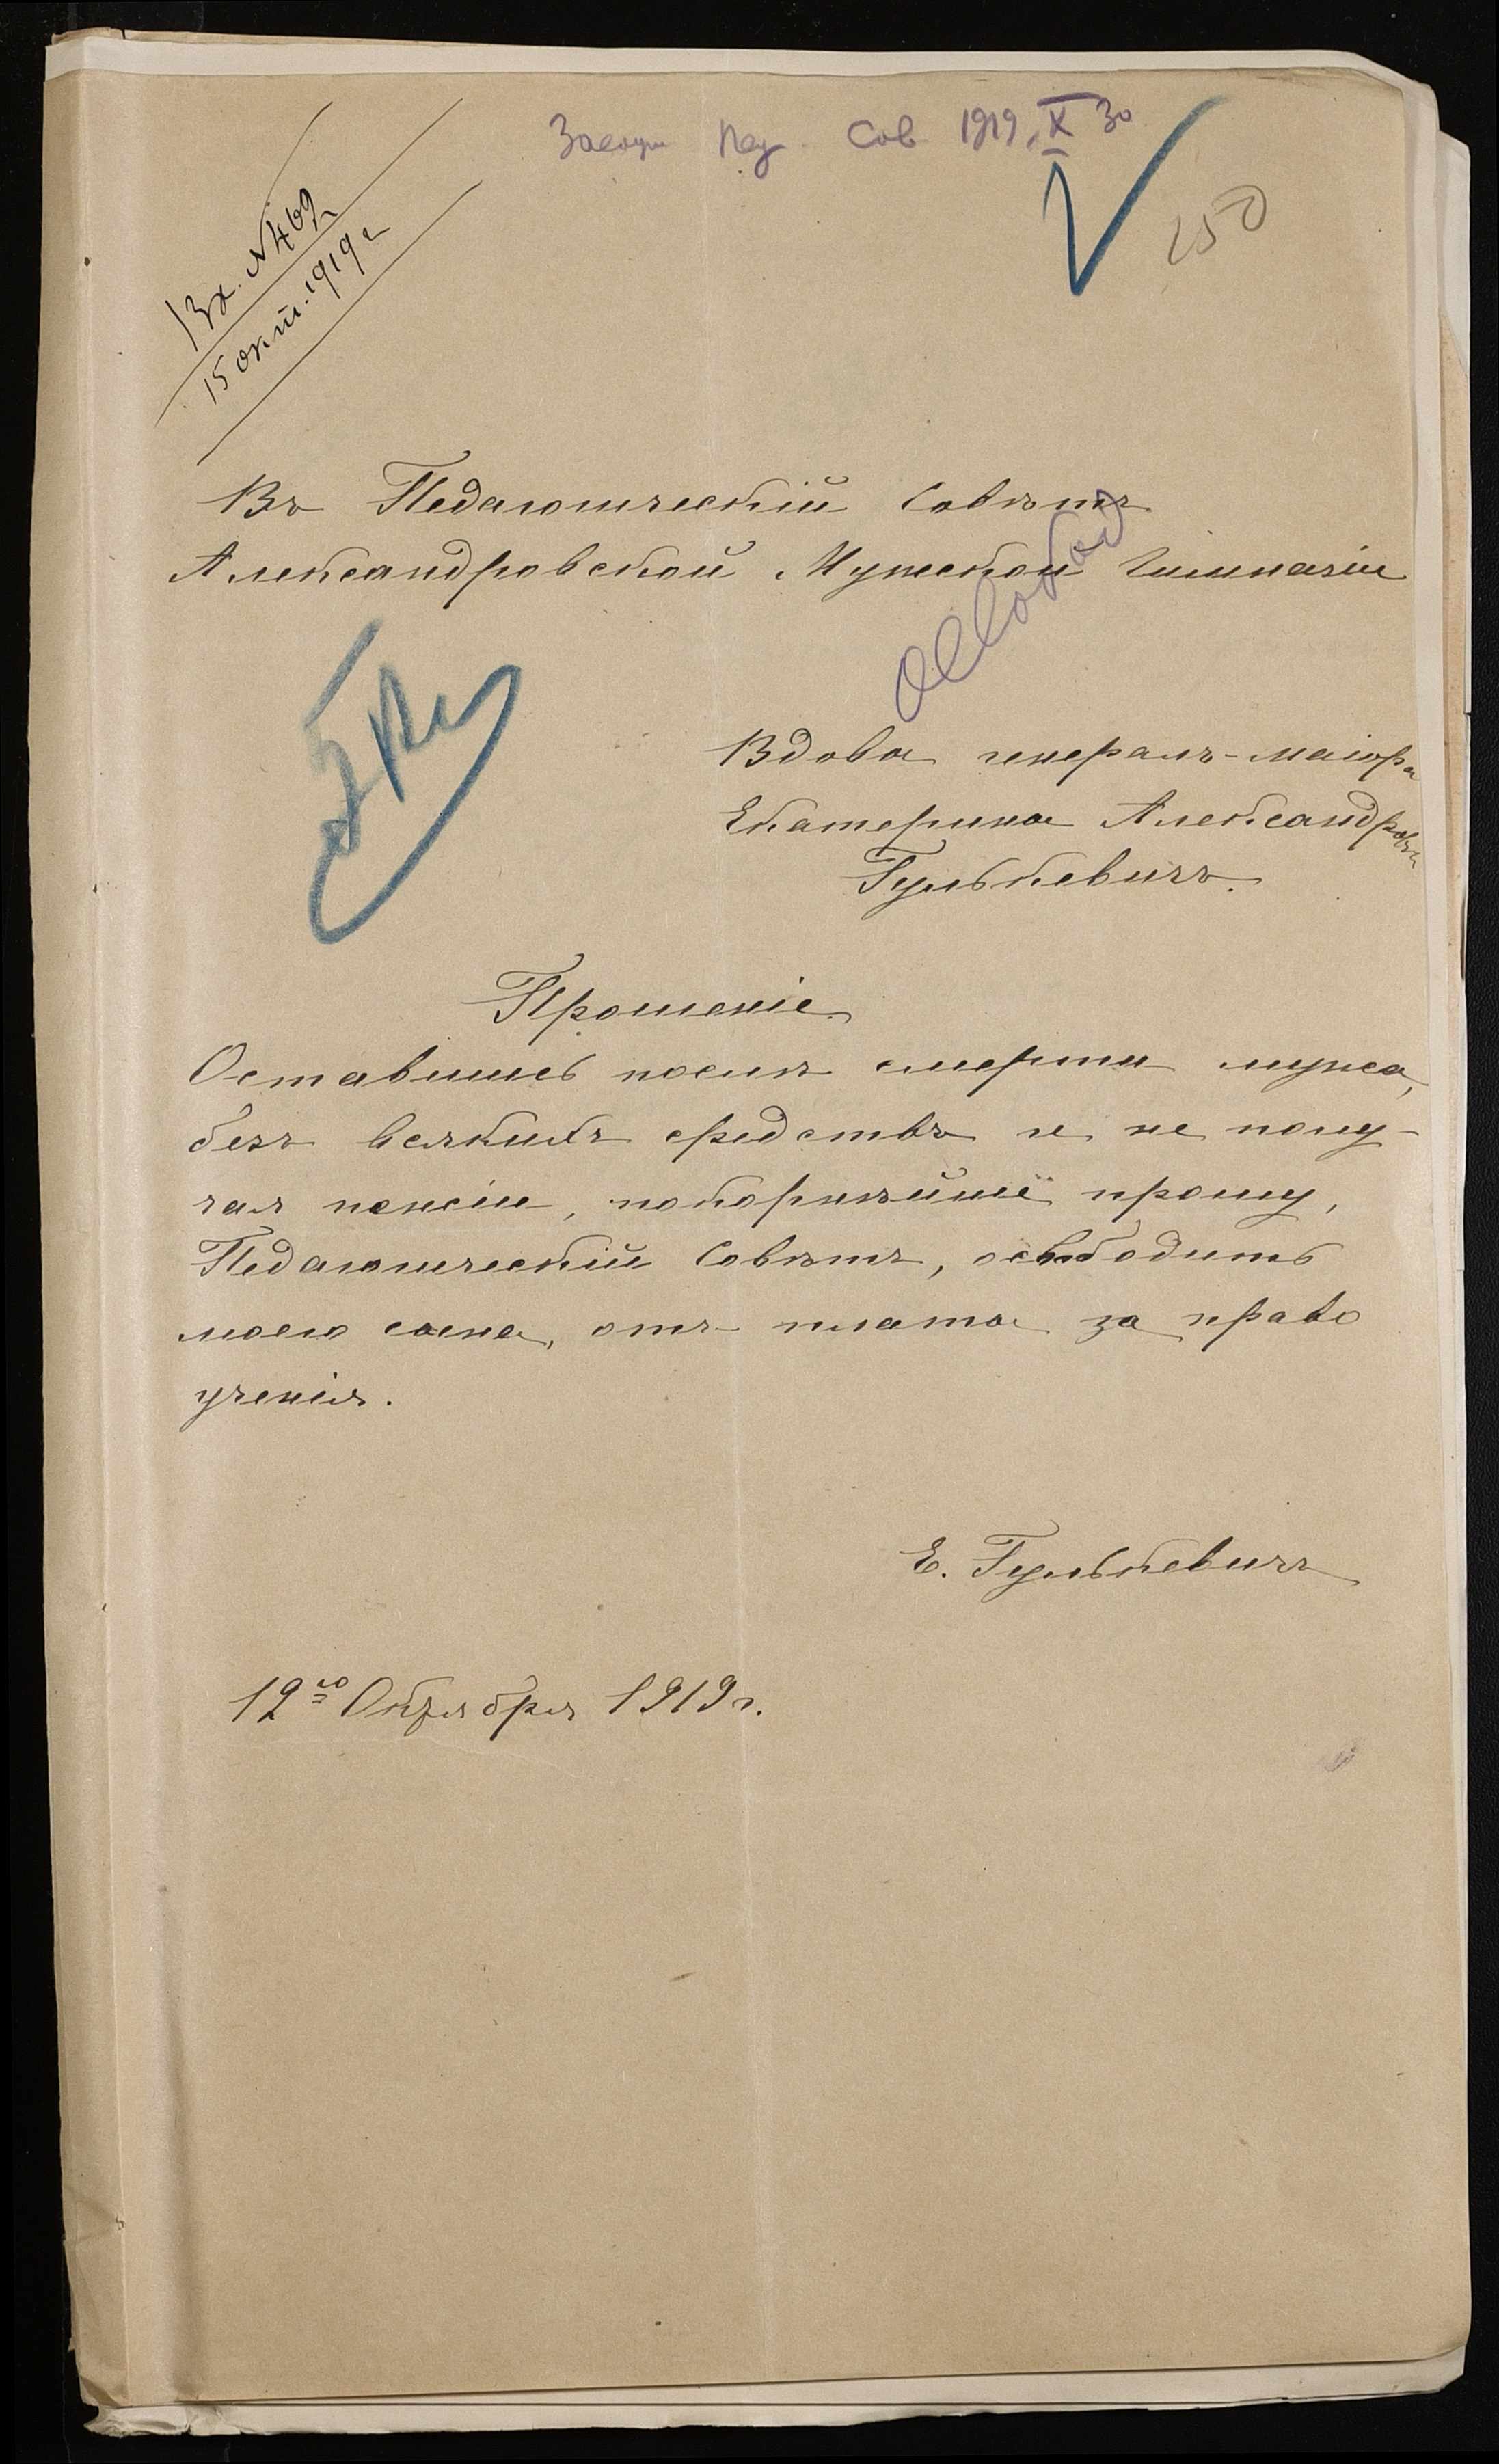 Засед Пед. Сов 1919, X 30
250
Вх. № 469
15 окт. 1919 г
Въ Педагогическій Совѣтъ
Александровской Мужской Гимназіи
освобод
Вдова генералъ-маіора
Екатерина Александровна
Гулькевичъ.
Прошеніе
Оставшись послѣ смерти мужа,
безъ всякихъ средствъ и не полу-
чая пенсіи, покорнѣйше прошу,
Педагогическій Совѣтъ, освободить
моего сына, отъ платы за право
ученія.
Е. Гулькевичъ
12го Октября 1919 г.